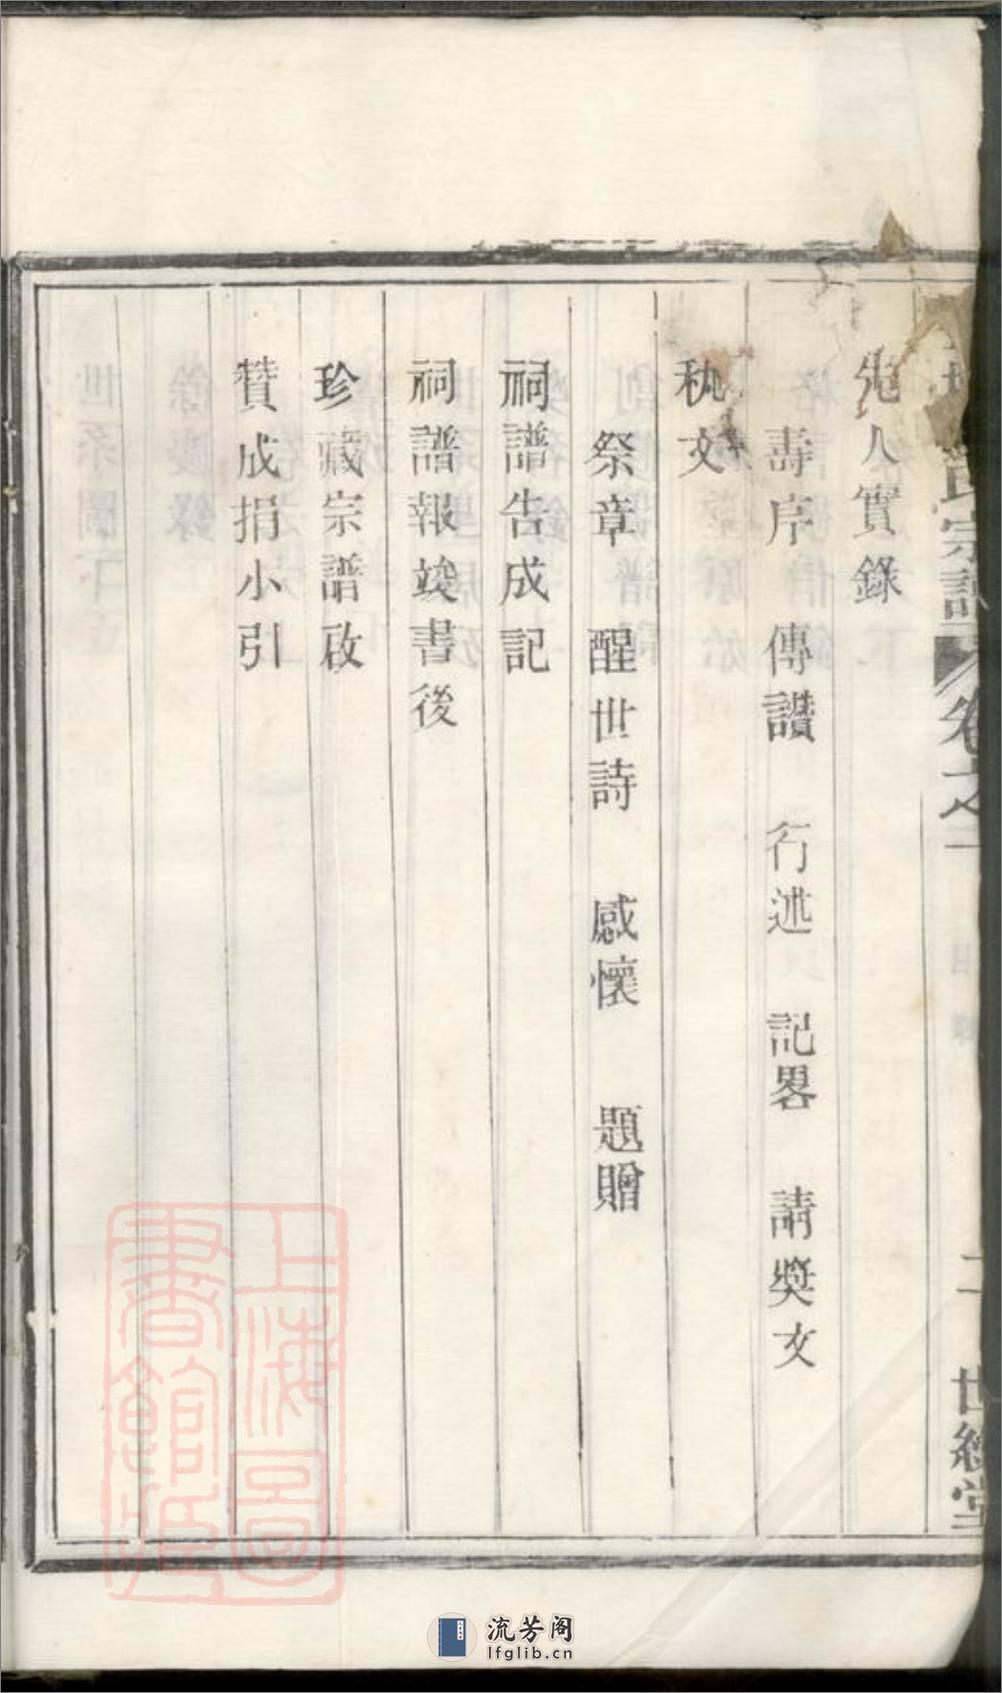 氏宗譜 卷之一 二 世綸堂
先人實錄
壽序 傳讚 行述 記畧 請奬文
執文
祭章 醒世詩 感懷 題贈
祠譜告成記
祠譜報竣書後
珍藏宗譜啟
贊成捐小引
上海圖書館藏
流芳阁
lfglib.cn